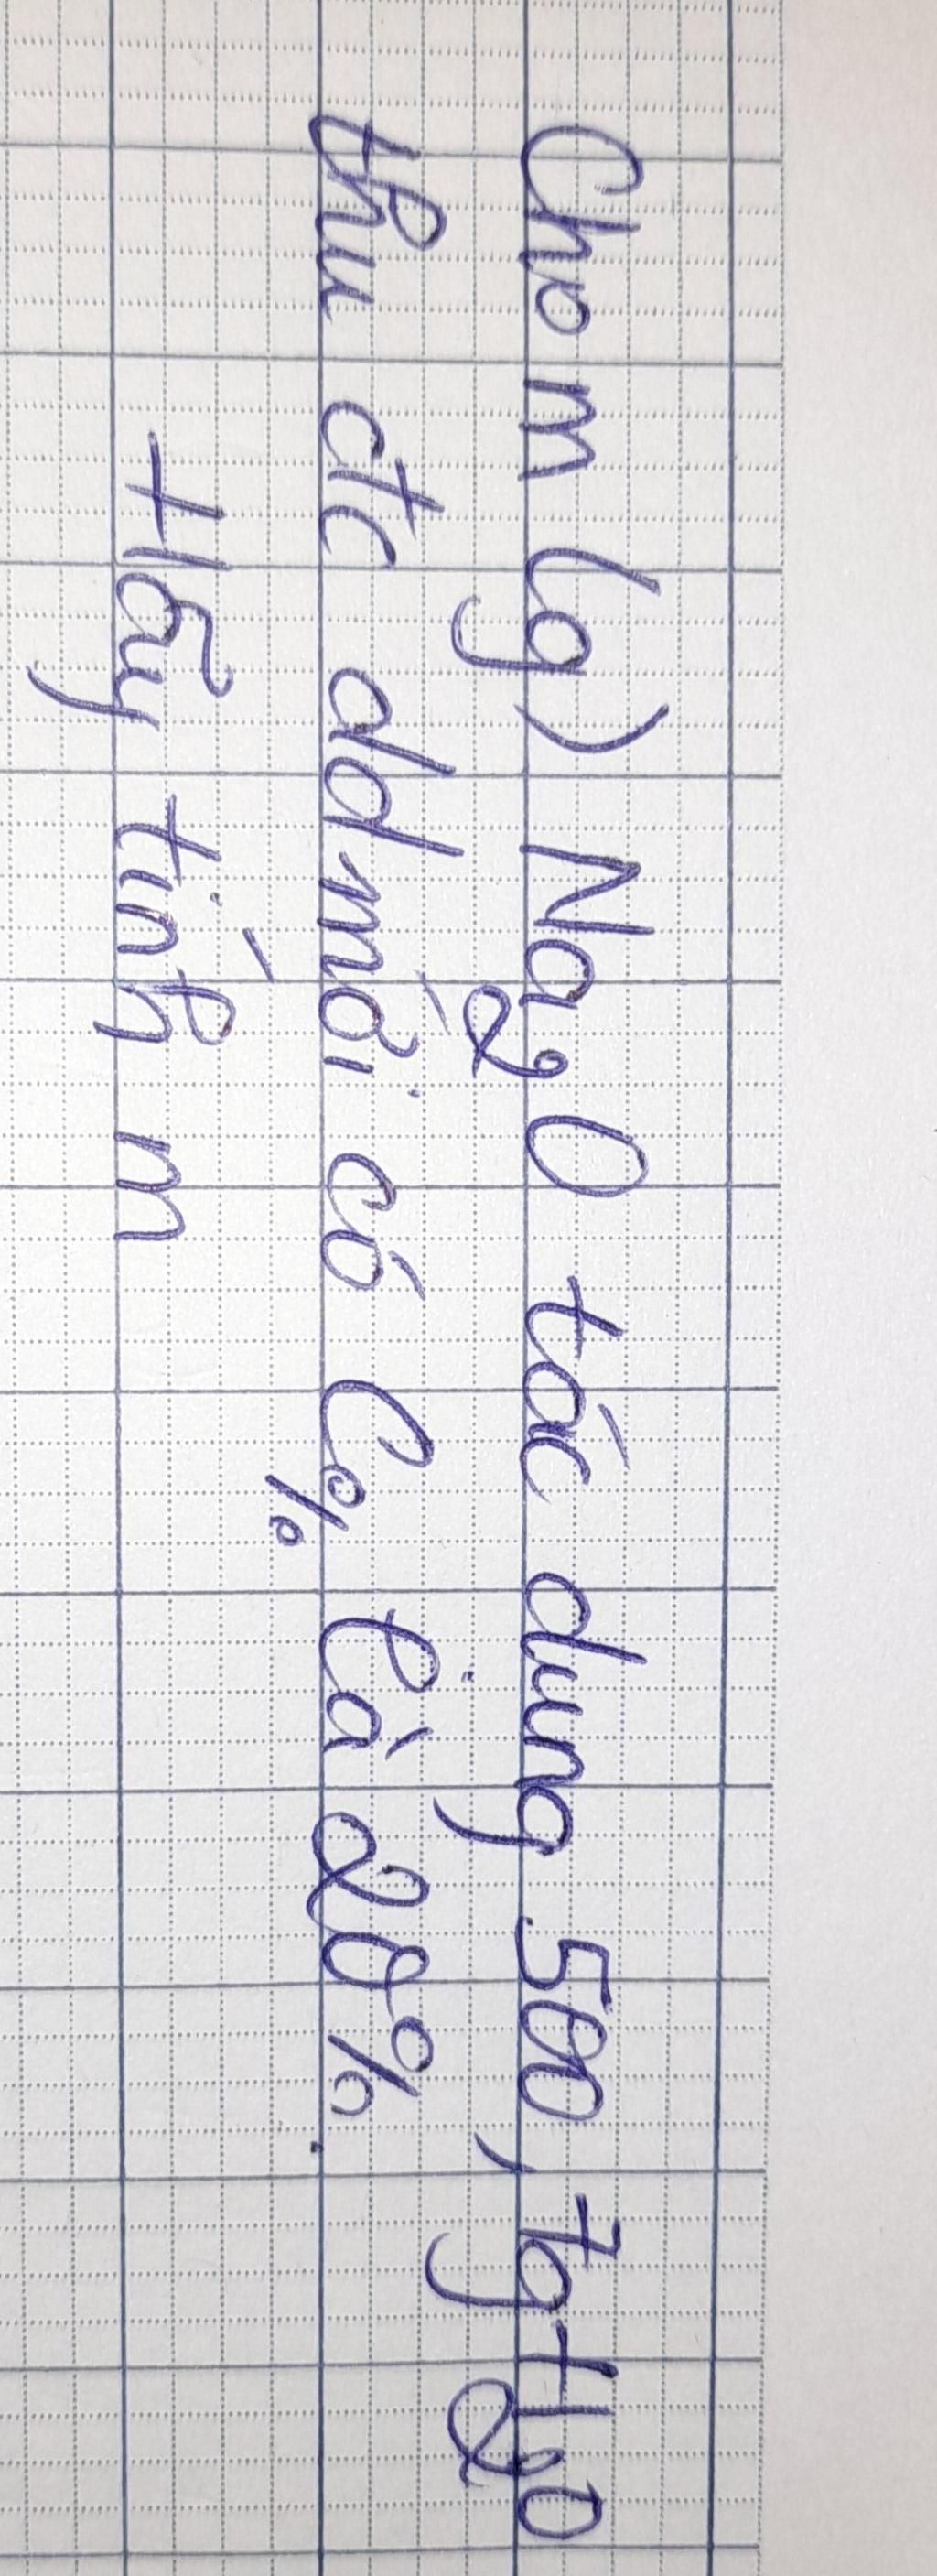 Cho m (g) Na2O tác dụng 500,7g H2O
thu đc dd mới có C% là 20%.
Hãy tính m